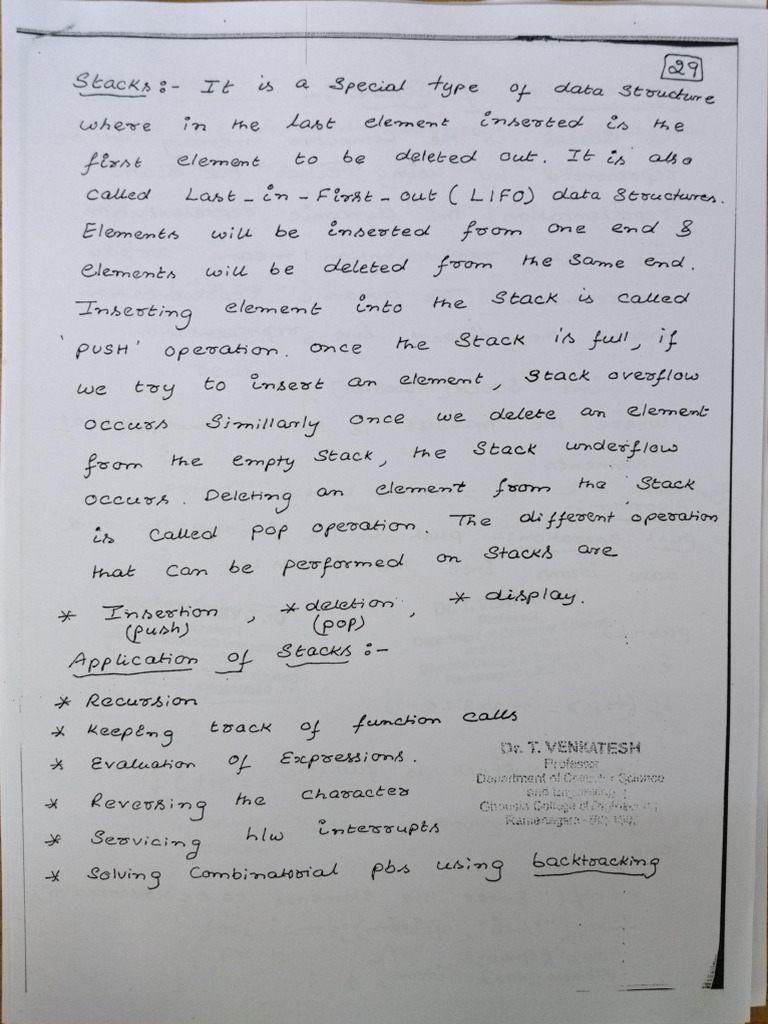 29
Stacks:- It is a special type of data structure
where in the last element inserted is the
first element to be deleted out. It is also
called Last-in-First-out (LIFO) data structures.
Elements will be inserted from one end &
elements will be deleted from the same end.
Inserting element into the stack is called
'PUSH' operation. once the stack is full, if
we try to insert an element, stack overflow
occurs Simillarly once we delete an element
from the empty stack, the stack underflow
occurs. Deleting an element from the stack
is called pop operation. The different operation
that can be performed on stacks are
* Insertion (push), * deletion (pop), * display.
Application of Stacks:-
* Recursion
* Keeping track of function calls
* Evaluation of Expressions.
* Reversing the character
* Servicing h/w interrupts
* Solving Combinatorial pbs using backtracking
Dr. T. VENKATESH
Professor
Department of Computer Science
and Engineering
Ghousia College of Engineering
Ramanagara -